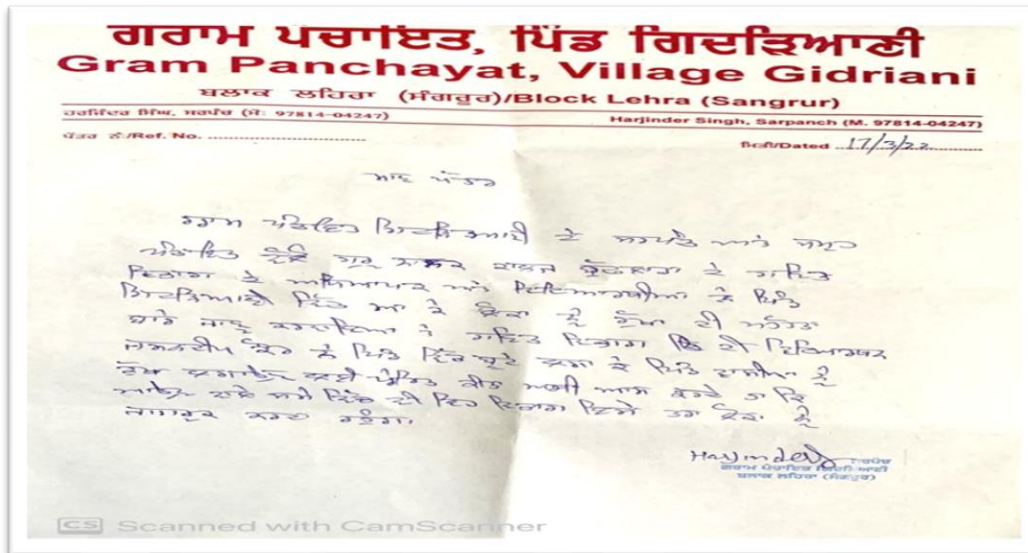 ਗਰਾਮ ਪੰਚਾਇਤ, ਪਿੰਡ ਗਿਦੜਿਆਣੀ
Gram Panchayat, Village Gidriani
ਬਲਾਕ ਲਹਿਰਾ (ਸੰਗਰੂਰ)/Block Lehra (Sangrur)
ਹਰਜਿੰਦਰ ਸਿੰਘ, ਸਰਪੰਚ (ਮੋ: 97814-04247) Harjinder Singh, Sarpanch (M. 97814-04247)
ਪੱਤਰ ਨੰ:/Ref. No. ................ ਮਿਤੀ/Dated ..17/3/22..........
ਮਾਣ ਪੱਤਰ
ਗਰਾਮ ਪੰਚਾਇਤ ਗਿਦੜਿਆਣੀ ਦੇ ਸਰਪੰਚ ਅਤੇ ਸਮੂਹ
ਪੰਚਾਇਤ ਵੱਲੋਂ ਗੁਰੂ ਨਾਨਕ ਕਾਲਜ ਬੁਢਲਾਡਾ ਦੇ ਗਣਿਤ
ਵਿਭਾਗ ਦੇ ਅਧਿਆਪਕ ਅਤੇ ਵਿਦਿਆਰਥੀਆਂ ਨੇ ਪਿੰਡ
ਗਿਦੜਿਆਣੀ ਵਿੱਚ ਆ ਕੇ ਲੋਕਾਂ ਨੂੰ ਰੁੱਖਾਂ ਦੀ ਮਹੱਤਤਾ
ਬਾਰੇ ਜਾਣੂ ਕਰਵਾਇਆ ਤੇ ਗਣਿਤ ਵਿਭਾਗ ਦੀ ਵਿਦਿਆਰਥਣ
ਕੌਰ ਨੇ ਪਿੰਡ ਵਿੱਚ ਬੂਟੇ ਲਗਾ ਕੇ ਪਿੰਡ ਵਾਸੀਆਂ ਨੂੰ
ਰੁੱਖ ਲਗਾਉਣ ਲਈ ਪ੍ਰੇਰਿਤ ਕੀਤਾ ਅਸੀਂ ਆਸ ਕਰਦੇ ਹਾਂ ਕਿ
ਆਉਣ ਵਾਲੇ ਸਮੇਂ ਵਿੱਚ ਵੀ ਇਹ ਵਿਭਾਗ ਇਸੇ ਤਰਾਂ ਲੋਕਾਂ ਨੂੰ
ਜਾਗਰੂਕ ਕਰਦਾ ਰਹੇਗਾ।
Harjinder
ਸਰਪੰਚ
ਗਰਾਮ ਪੰਚਾਇਤ ਗਿਦੜਿਆਣੀ
ਬਲਾਕ ਲਹਿਰਾ (ਸੰਗਰੂਰ)
CS Scanned with CamScanner